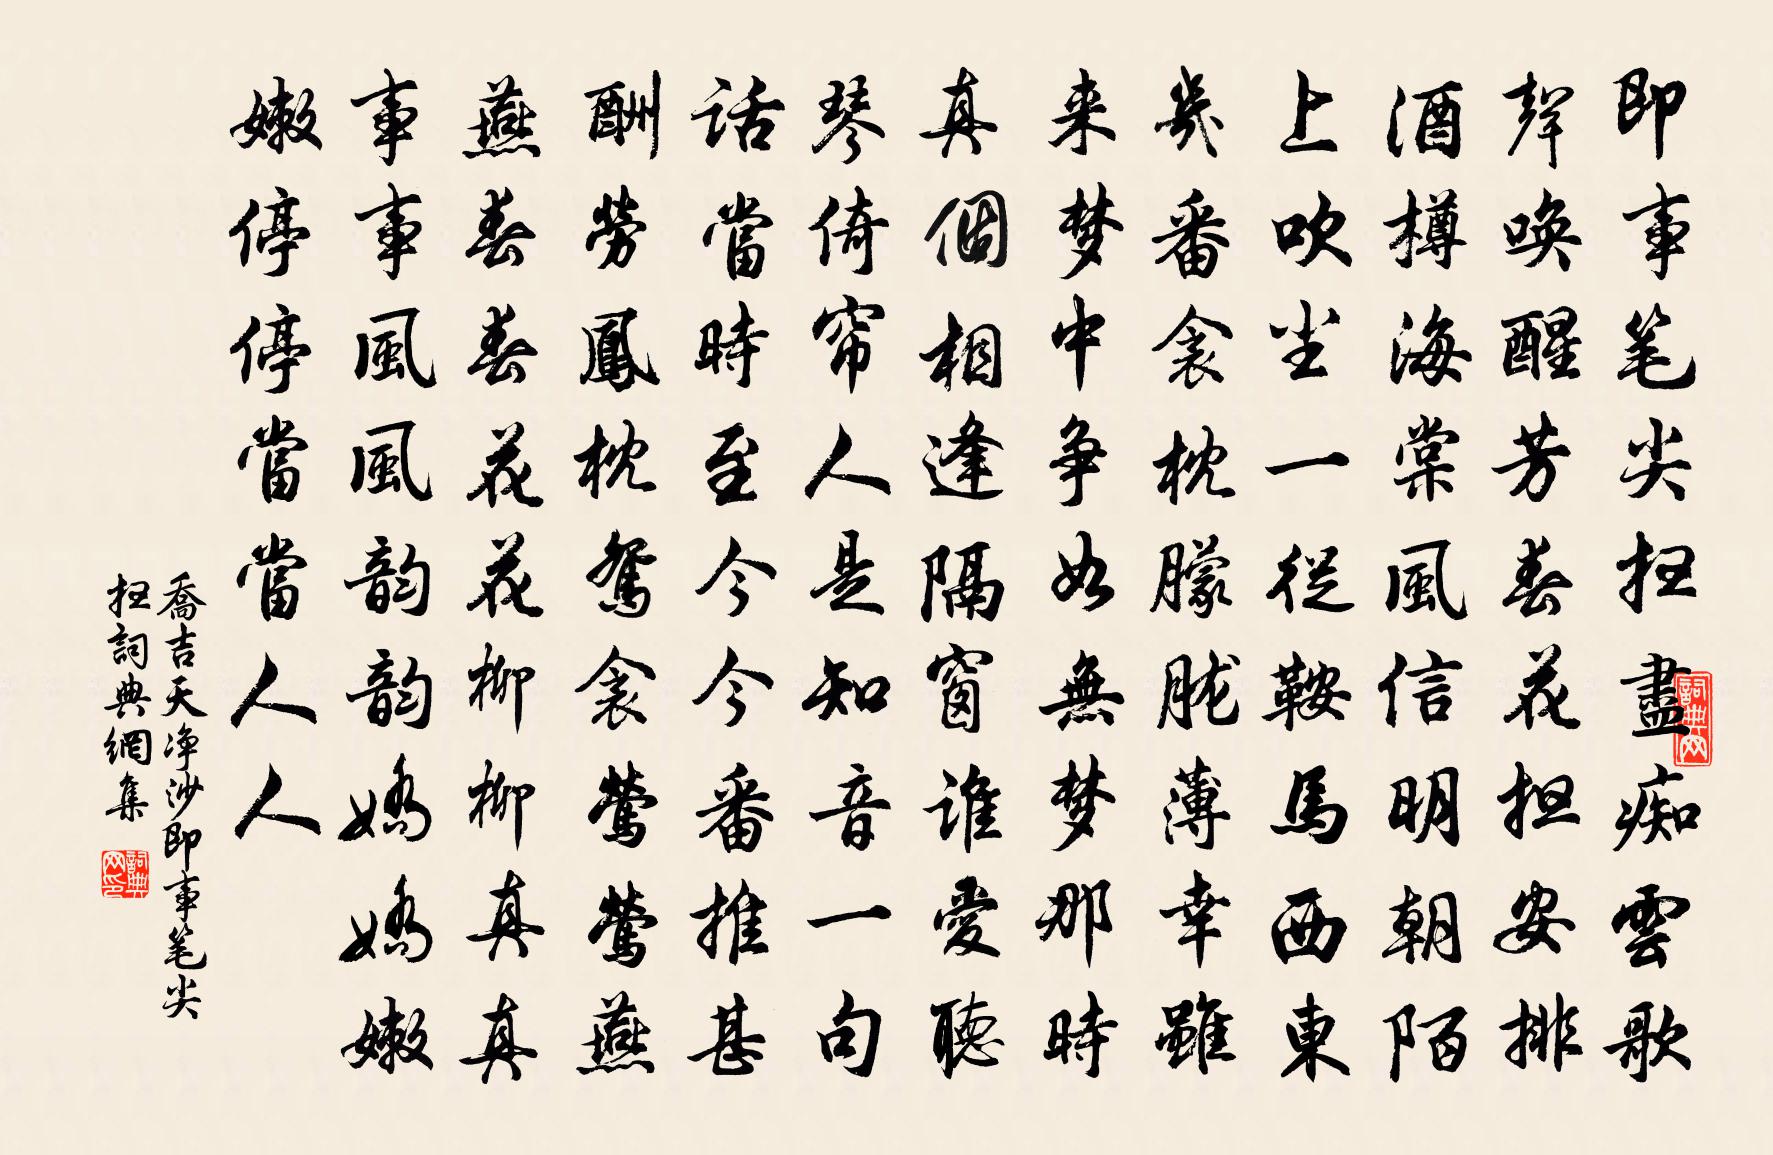 即事笔尖扫盡痴雲歌
聲唤醒芳春花担安排
酒樽海棠風信明朝陌
上吹尘一從鞍馬西東
幾番衾枕朦胧薄幸雖
来梦中争如無梦那時
真個相逢隔窗谁愛聽
琴倚帘人是知音一句
话當時至今今番推甚
酬勞鳳枕鴛衾鶯鶯燕
燕春春花花柳柳真真
事事風風韵韵嬌嬌嫩
嫩停停當當人人
喬吉天净沙即事笔尖
扫詞典網集
詞典网
詞典网印